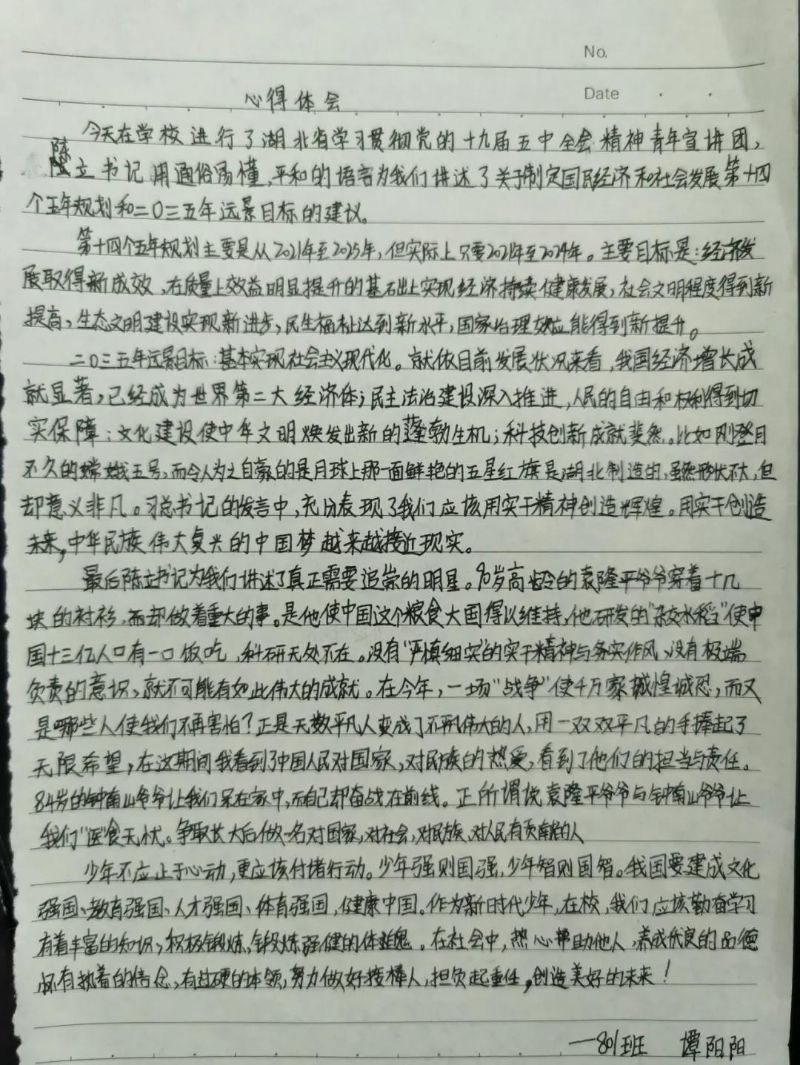 No.
Date
心得体会
今天在学校进行了湖北省学习贯彻党的十九届五中全会精神青年宣讲团,
陈立书记用通俗易懂,平和的语言为我们讲述了关于制定国民经济和社会发展第十四
个五年规划和二〇三五年远景目标的建议。
第十四个五年规划主要是从2021年至2025年,但实际上只要2021年至2024年。主要目标是:经济发
展取得新成效,在质量上效益明显提升的基础上实现经济持续健康发展,社会文明程度得到新
提高,生态文明建设实现新进步,民生福祉达到新水平,国家治理效应能得到新提升。
二〇三五年远景目标:基本实现社会主义现代化。就依目前发展状况来看,我国经济增长成
就显著,已经成为世界第二大经济体;民主法治建设深入推进,人民的自由和权利得到切
实保障;文化建设使中华文明焕发出新的蓬勃生机;科技创新成就斐然。比如刚登月
不久的嫦娥五号,而令人为之自豪的是月球上那一面鲜艳的五星红旗是湖北制造的,虽然形状不大,但
却意义非凡。习总书记的发言中,充份表现了我们应该用实干精神创造辉煌。用实干创造
未来,中华民族伟大复兴的中国梦越来越接近现实。
最后陈立书记为我们讲述了真正需要追崇的明星。90岁高龄的袁隆平爷爷穿着十几
块的衬衫,而却做着重大的事。是他使中国这个粮食大国得以维持,他研发的“杂交水稻”使中
国十三亿人口有一口饭吃,科研无处不在。没有“严慎细实”的实干精神与务实作风、没有极端
负责的意识,就不可能有如此伟大的成就。在今年,一场“战争”使千万家惶诚恐,而又
是哪些人使我们不再害怕?正是无数平凡人变成了不平凡伟大的人,用一双双平凡的手捧起了
无限希望,在这期间我看到了中国人民对国家,对民族的热爱,看到了他们的担当与责任。
84岁的钟南山爷爷让我们呆在家中,而自己却奋战在前线。正所谓说袁隆平爷爷与钟南山爷爷让
我们“医食无忧”。争取长大后做一名对国家,对社会,对民族、对人民有贡献的人
少年不应止于心动,更应该付诸行动。少年强则国强,少年智则国智。我国要建成文化
强国、教育强国、人才强国、体育强国,健康中国。作为新时代少年,在校,我们应该勤奋学习
有着丰富的知识;积极锻炼,锻炼强健的体魄。在社会中,热心帮助他人,养成优良的品德
怀有执着的信念,有过硬的本领,努力做好接棒人,担负起重任,创造美好的未来!
—801班 谭阳阳